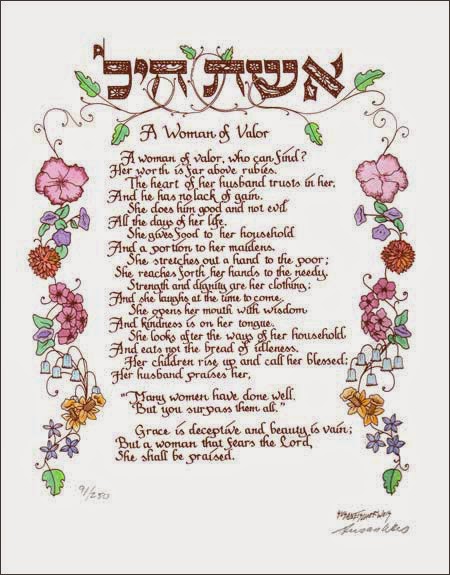 אשת חיל
A Woman of Valor
A woman of valor, who can find?
Her worth is far above rubies.
The heart of her husband trusts in her,
And he has no lack of gain.
She does him good and not evil
All the days of her life.
She gives food to her household
And a portion to her maidens.
She stretches out a hand to the poor;
She reaches forth her hands to the needy.
Strength and dignity are her clothing;
And she laughs at the time to come.
She opens her mouth with wisdom
And kindness is on her tongue.
She looks after the ways of her household
And eats not the bread of idleness.
Her children rise up and call her blessed;
Her husband praises her,
"Many women have done well.
But you surpass them all."
Grace is deceptive and beauty is vain;
But a woman that fears the Lord,
She shall be praised.
91/250